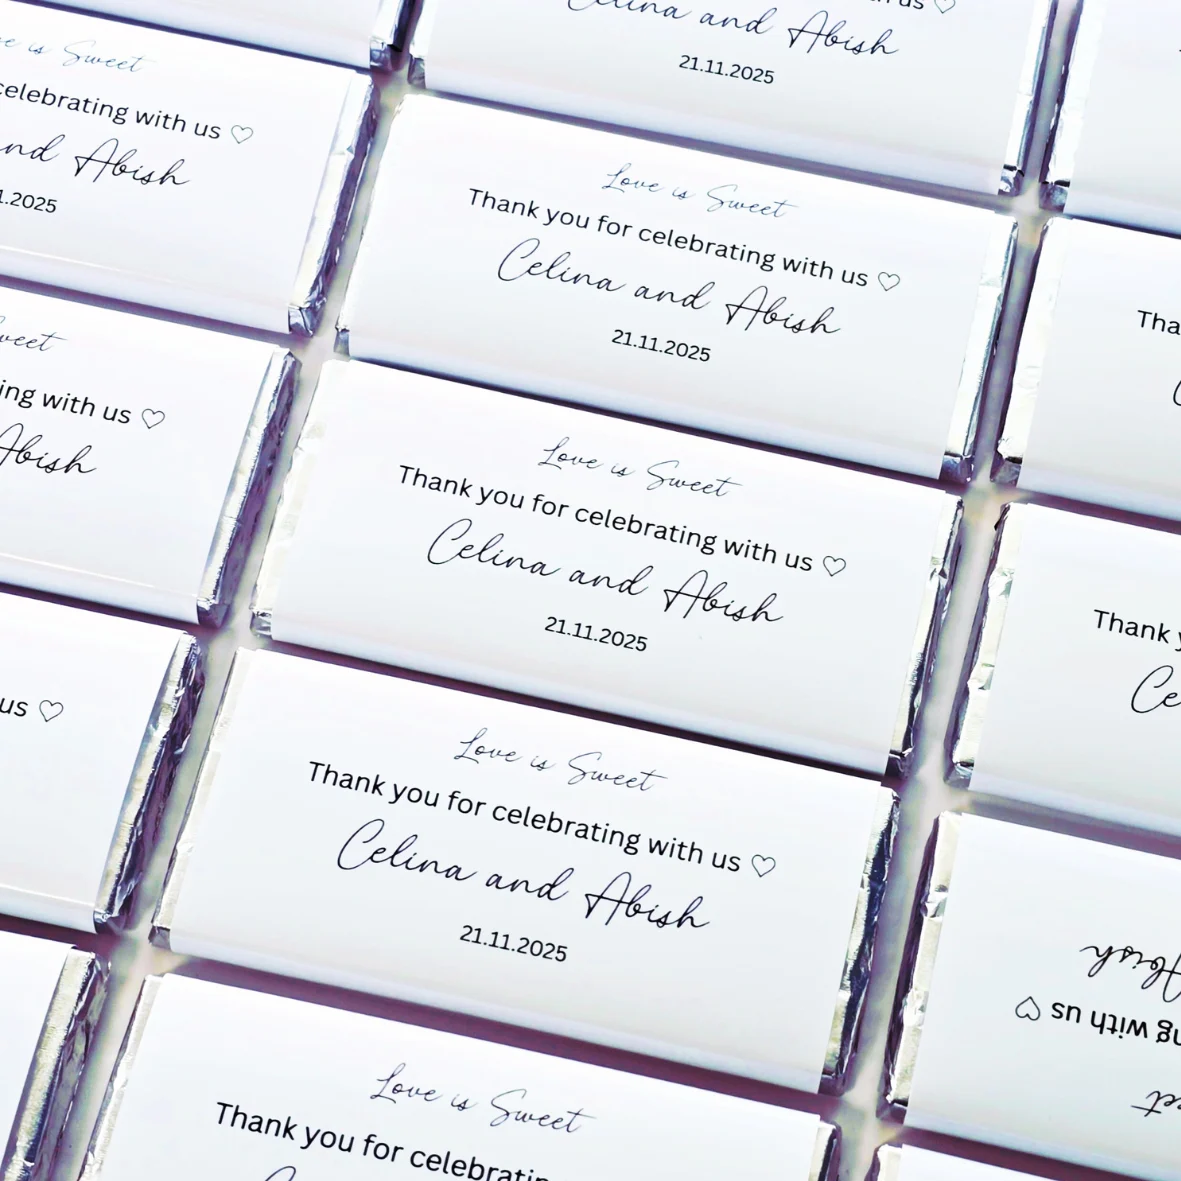 us ♡
Celina and Abish
21.11.2025
is Sweet
celebrating with us ♡
and Abish
.11.2025
Love is Sweet
Thank you for celebrating with us ♡
Celina and Abish
21.11.2025
Sweet
with us ♡
Abish
Love is Sweet
Thank you for celebrating with us ♡
Celina and Abish
21.11.2025
Thank
us ♡
Love is Sweet
Thank you for celebrating with us ♡
Celina and Abish
21.11.2025
Abish
with us ♡
Love is Sweet
Thank you for